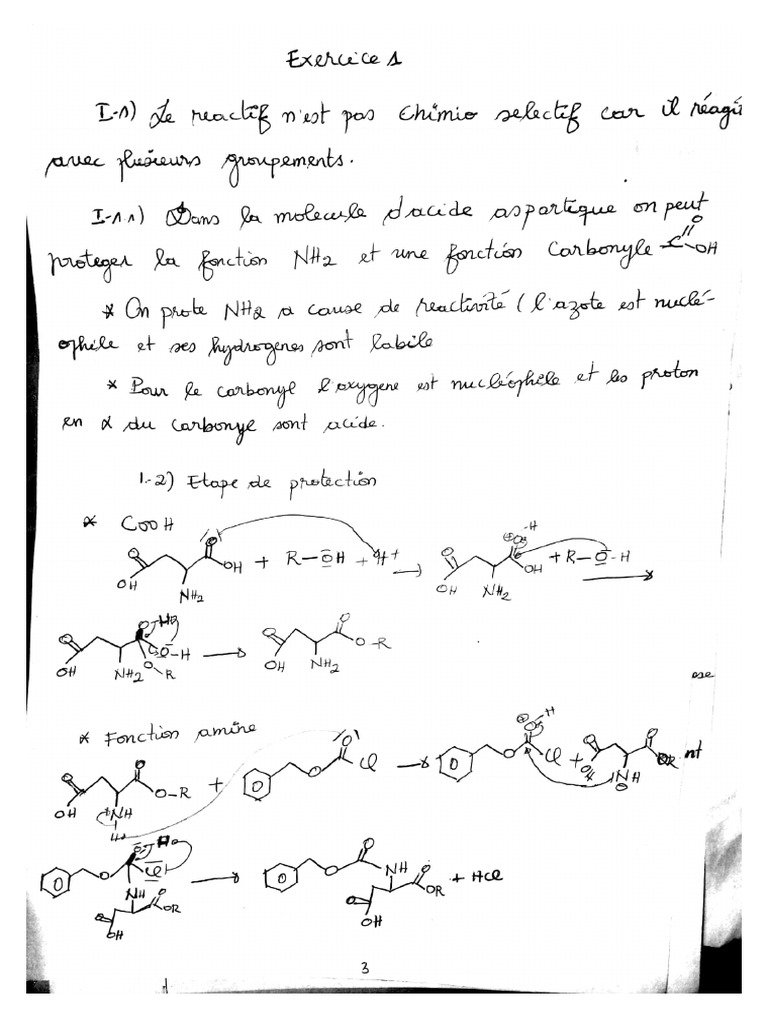 Exercice 1
I-1) Le reactif n'est pas chimio selectif car il réagit
avec plusieurs groupements.
I-1.1) Dans la molecule d'acide aspartique on peut
proteger la fonction NH2 et une fonction Carbonyle C O OH
* On prote NH2 a cause de reactivité (l'azote est nuclé-
ophile et ses hydrogenes sont labile
* Pour le carbonyl l'oxygene est nucléophile et les proton
en α du carbonyle sont acide.
1.-2) Etape de protection
* COOH
O OH O OH NH2 + R-OH + H+ → O OH O H OH NH2 + R-O-H →
O OH O H O-H O-R NH2 → O OH O O-R NH2
ose
* Fonction amine
O OH O O-R NH H + O O O Cl → O O O H Cl + O OH O OR NH O nt
O O O H Cl NH O OR O OH → O O O NH O OR O OH + HCl
3